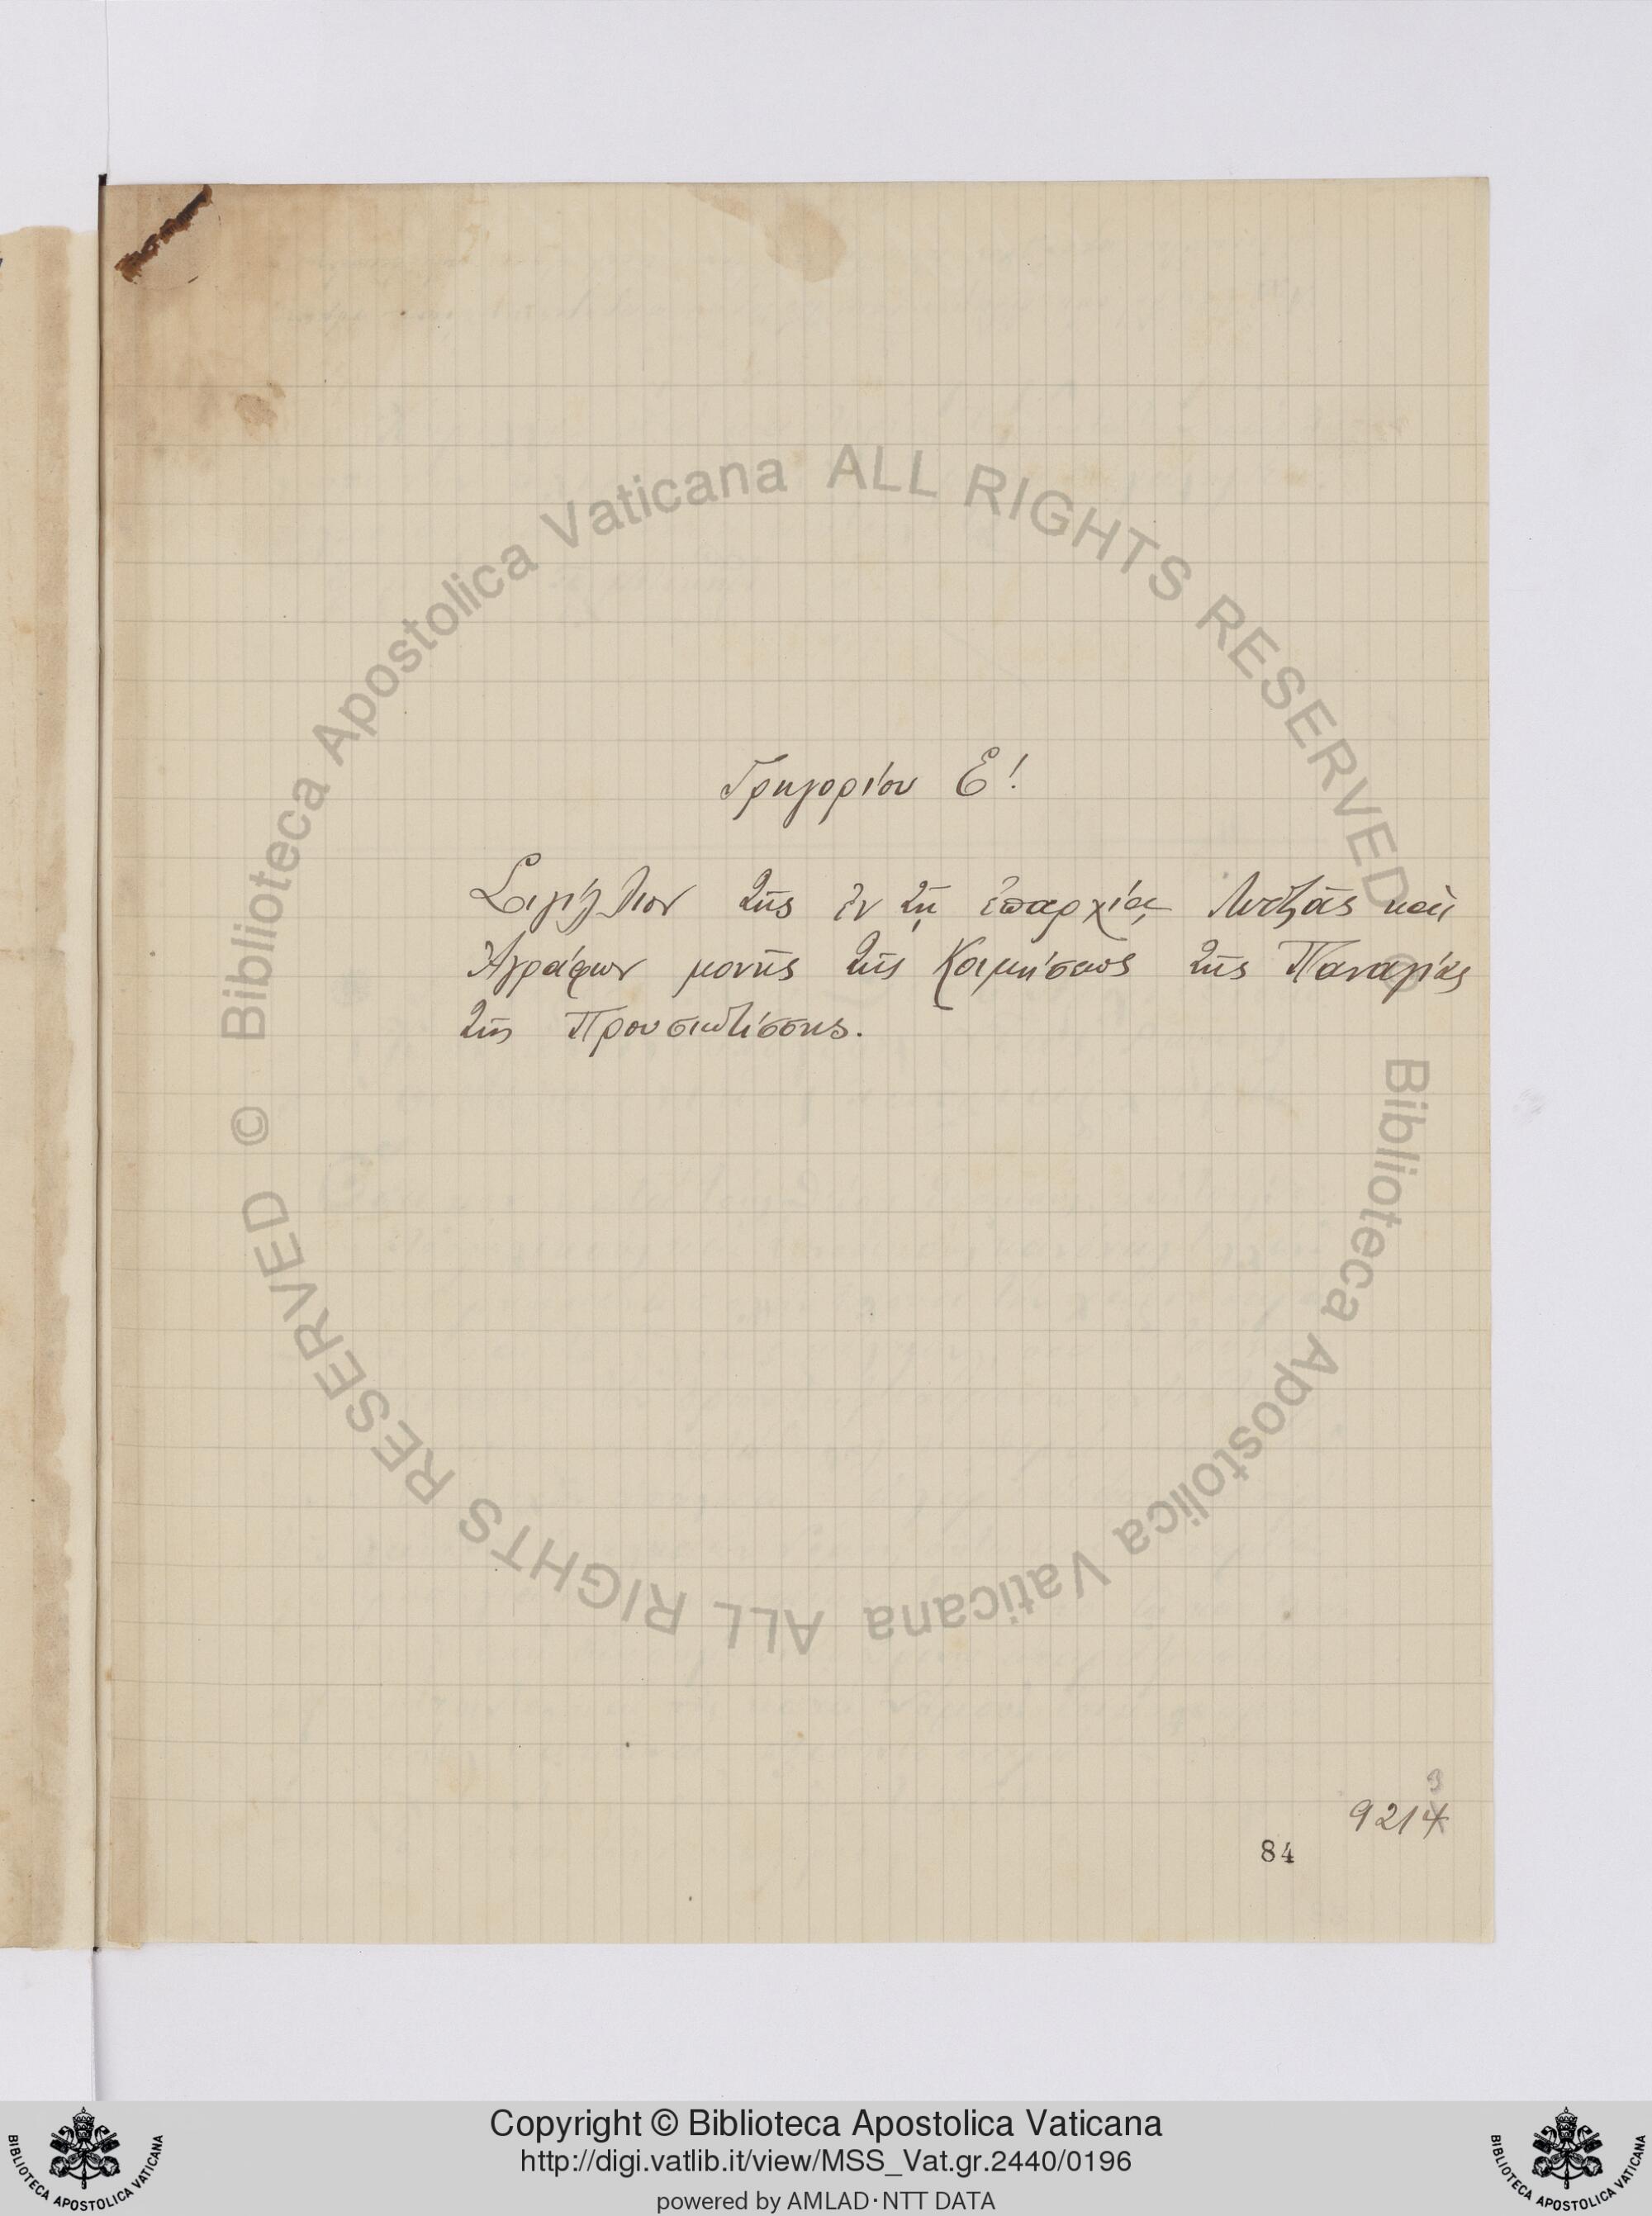 Γρηγορίου Ε'.
Σιγίλλιον τῆς ἐν τῇ ἐπαρχίᾳ Λιτζᾶς καὶ
Ἀγράφων μονῆς τῆς Κοιμήσεως τῆς Παναγίας
τῆς Προυσιωτίσσης.
3
9214
84
© Biblioteca Apostolica Vaticana ALL RIGHTS RESERVED
© Biblioteca Apostolica Vaticana ALL RIGHTS RESERVED
BIBLIOTECA APOSTOLICA VATICANA
Copyright © Biblioteca Apostolica Vaticana
http://digi.vatlib.it/view/MSS_Vat.gr.2440/0196
powered by AMLAD·NTT DATA
BIBLIOTECA APOSTOLICA VATICANA